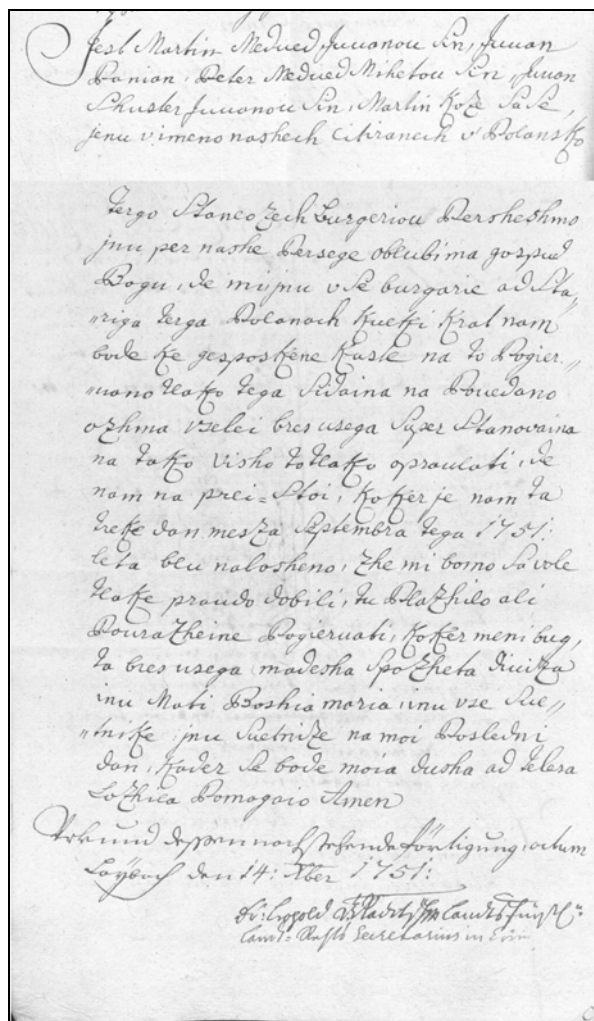 Jest Martin Medued Juuanou Sin, Juuan
Banian, Peter Medued Mihelou Sin, Juuan
Shuster Juuanou Sin, Martin Koze Sa Se,
jenu v imeno nashech Citiranech v Polansko
tergo Stanozech Burgeriou Persheshmo
jnu per nashe Persege oblubima gospud
Bogu, de mi jnu vse burgarie ad Sta„
„riga terga Polanach kulki krat nam
bode ke gosposkene kasle na to Pogier„
„uano tlako tega Sidaina na Pouedano
ozhma vselei bres usega Super Stanovaina
na tako visho to tlako oprauilati, de
nam na prei=Stoi, koker je nam ta
treke dan mesza Septembra tega 1751:
leta blu nalosheno, zhe mi bomo Sa vole
tlake praudo dobili, tu Plazhilo ali
Pourazheine Pogieruati, koker meni bug,
ta bres usega madesha Spozheta Diviza
inu Mati Boshia maria, inu vse Sue„
„tnike, jnu Suetnize na moi Posledni
dan, kader Se bode moia dusha ad telesa
Lozhila Pomagaio Amen
Urkund dessen nachstehende förtigung, actum
Laybach den 14: Xber 1751:
Leopold
Secretarius in